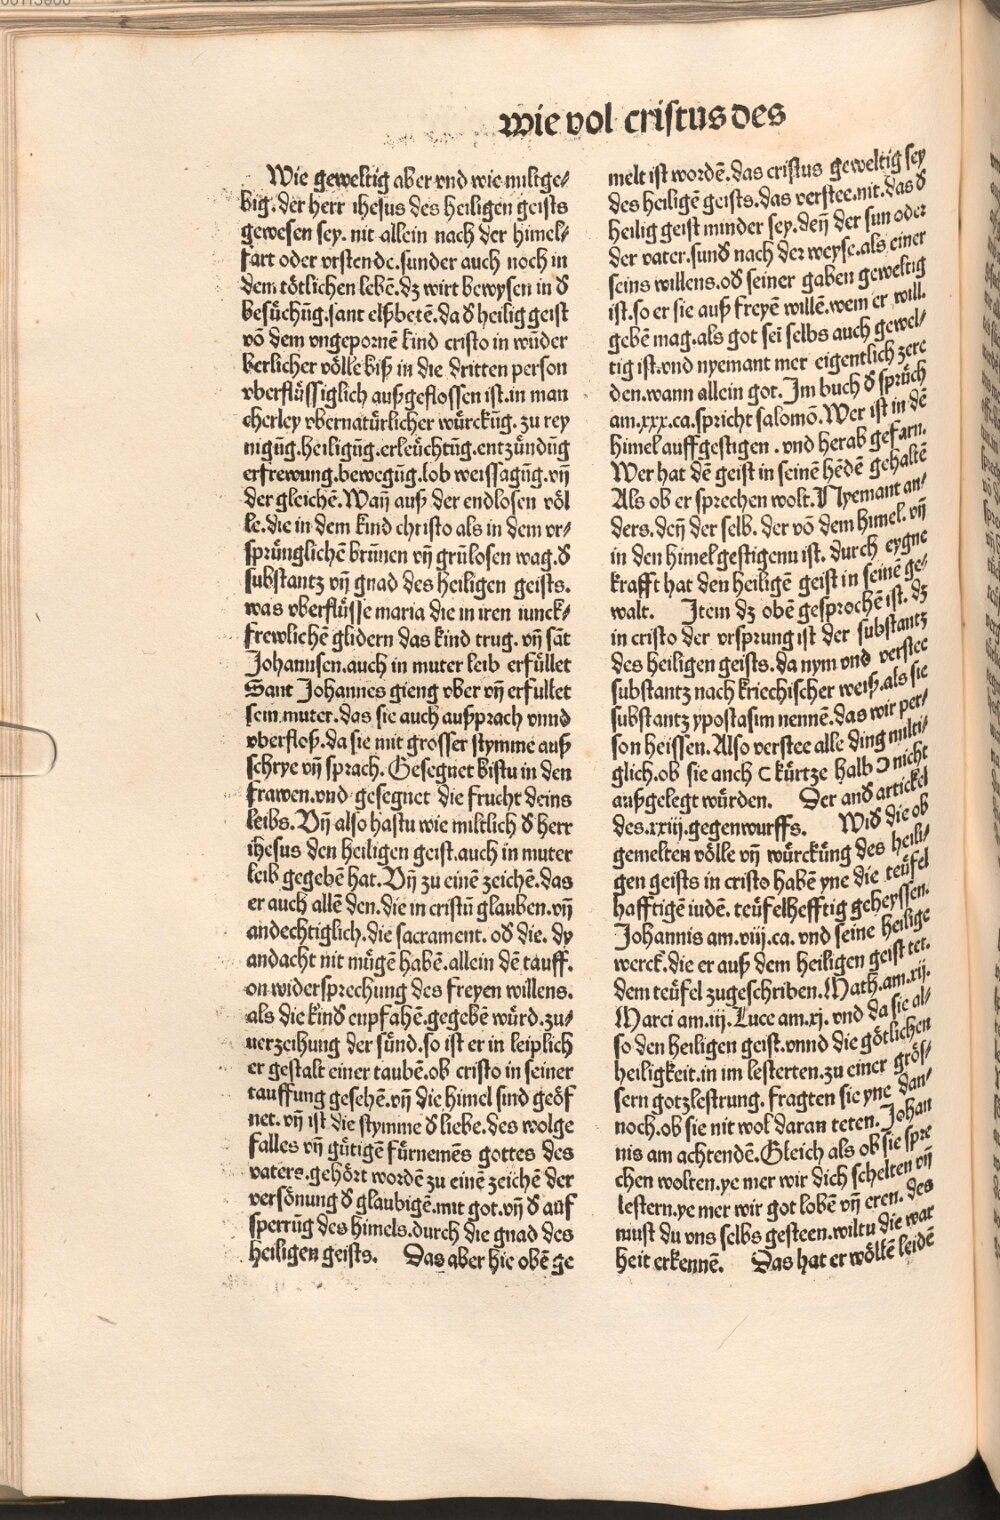 wie vol cristus des
Wie geweltig aber vnd wie miltge⸗
big. der herr ihesus des heiligen geists
gewesen sey. nit allein nach der himel⸗
fart oder vrstende. sunder auch noch in
dem tötlichen lebē. dz wirt bewysen in đ
besůchūg. sant elßbetē. da đ heilig geist
vō dem vngepornē kind cristo in wūder
berlicher völle biß in die dritten person
vberflüssiglich außgeflossen ist. in man
cherley vbernatürlicher würckūg. zu rey
nigūg. heiligūg. erleüchtūg. entzündūg
erfrewung. bewegūg. lob weissagūg. vñ
der gleichē. Wañ auß der endlosen völ
le. die in dem kind christo als in dem vr⸗
sprünglichē brūnen vñ grūlosen wag. đ
substantz vñ gnad des heiligen geists.
was vberflüsse maria die in iren iunck⸗
frewlichē glidern das kind trug. vñ sāt
Johannsen. auch in muter leib erfüllet
Sant Johannes gieng vber vñ erfullet
sein muter. das sie auch außprach vnnd
vberfloß. da sie mit grosser stymme auß
schrye vñ sprach. Gesegnet bistu in den
frawen. vnd gesegnet die frucht deins
leibs. Vñ also hastu wie miltlich đ herr
ihesus den heiligen geist. auch in muter
leib gegebē hat. Vñ zu einē zeichē. das
er auch allē den. die in cristū glauben. vñ
andechtiglich. die sacrament. ođ die. dy
andacht nit mügē habē. allein dē tauff.
on widersprechung des freyen willens.
als die kinđ enpfahē. gegebē würd. zu⸗
uerzeihung der sünd. so ist er in leiplich
er gestalt einer taubē. ob cristo in seiner
tauffung gesehē. vñ die himel sind geöf
net. vñ ist die stymme đ liebe. des wolge
falles vñ gütigē fürnemēs gottes des
vaters. gehört wordē zu einē zeichē der
versönung đ glaubigē. mit got. vñ đ auf
sperrūg des himels. durch die gnad des
heiligen geists. Das aber hie obē ge
melt ist wordē. das cristus geweltig sey
des heiligē geists. das verstee. nit. das đ
heilig geist minder sey. deñ der sun oder
der vater. sunđ nach der weyse. als einer
seins willens. ođ seiner gaben geweltig
ist. so er sie auß freyē willē. wem er will.
gebē mag. als got sei selbs auch gewel⸗
tig ist. vnd nyemant mer eigentlich zere
den. wann allein got. Im buch đ sprüch
am. xxx. ca. spricht salomō. Wer ist in dē
himel auffgestigen. vnd herab gefarn.
Wer hat dē geist in seinē hēdē gehaltē
Als ob er sprechen wolt. Nyemant an⸗
ders. deñ der selb. der vō dem himel. vñ
in den himel gestigenn ist. durch eygne
krafft hat den heiligē geist in seinē ge⸗
walt. Item dz obē gesprochē ist. dz
in cristo der vrsprung ist der substantz
des heiligen geists. da nym vnd verstee
substantz nach kriechischer weiß. als sie
substantz ypostasim nennē. das wir per⸗
son heissen. Also verstee alle ding multi⸗
glich. ob sie anch ⊂ kürtze halb ⊃ nicht
außgelegt würden. Der anđ artickel
des. xxiij. gegenwurffs. Wiđ die ob
gemelten völle vñ würckūng des heili⸗
gen geists in cristo habē yne die teüfel
hafftigē iudē. teüfelhefftig geheyssen.
Johannis am. viij. ca. vnd seine heilige
werck. die er auß dem heiligen geist tet.
dem teüfel zugeschriben. Math. am. xij.
Marci am. iij. Luce am. xj. vnd da sie al⸗
so den heiligen geist. vnnd die götlichen
heiligkeit. in im lesterten. zu einer grös⸗
sern gotzlestrung. fragten sie yne dan⸗
noch. ob sie nit wol daran teten. Johan
nis am achtendē. Gleich als ob sie spre
chen wolten. ye mer wir dich schelten vñ
lestern. ye mer wir got lobē vñ eren. des
must du vns selbs gesteen. wiltu die war
heit erkennē. Das hat er wöllē leidē